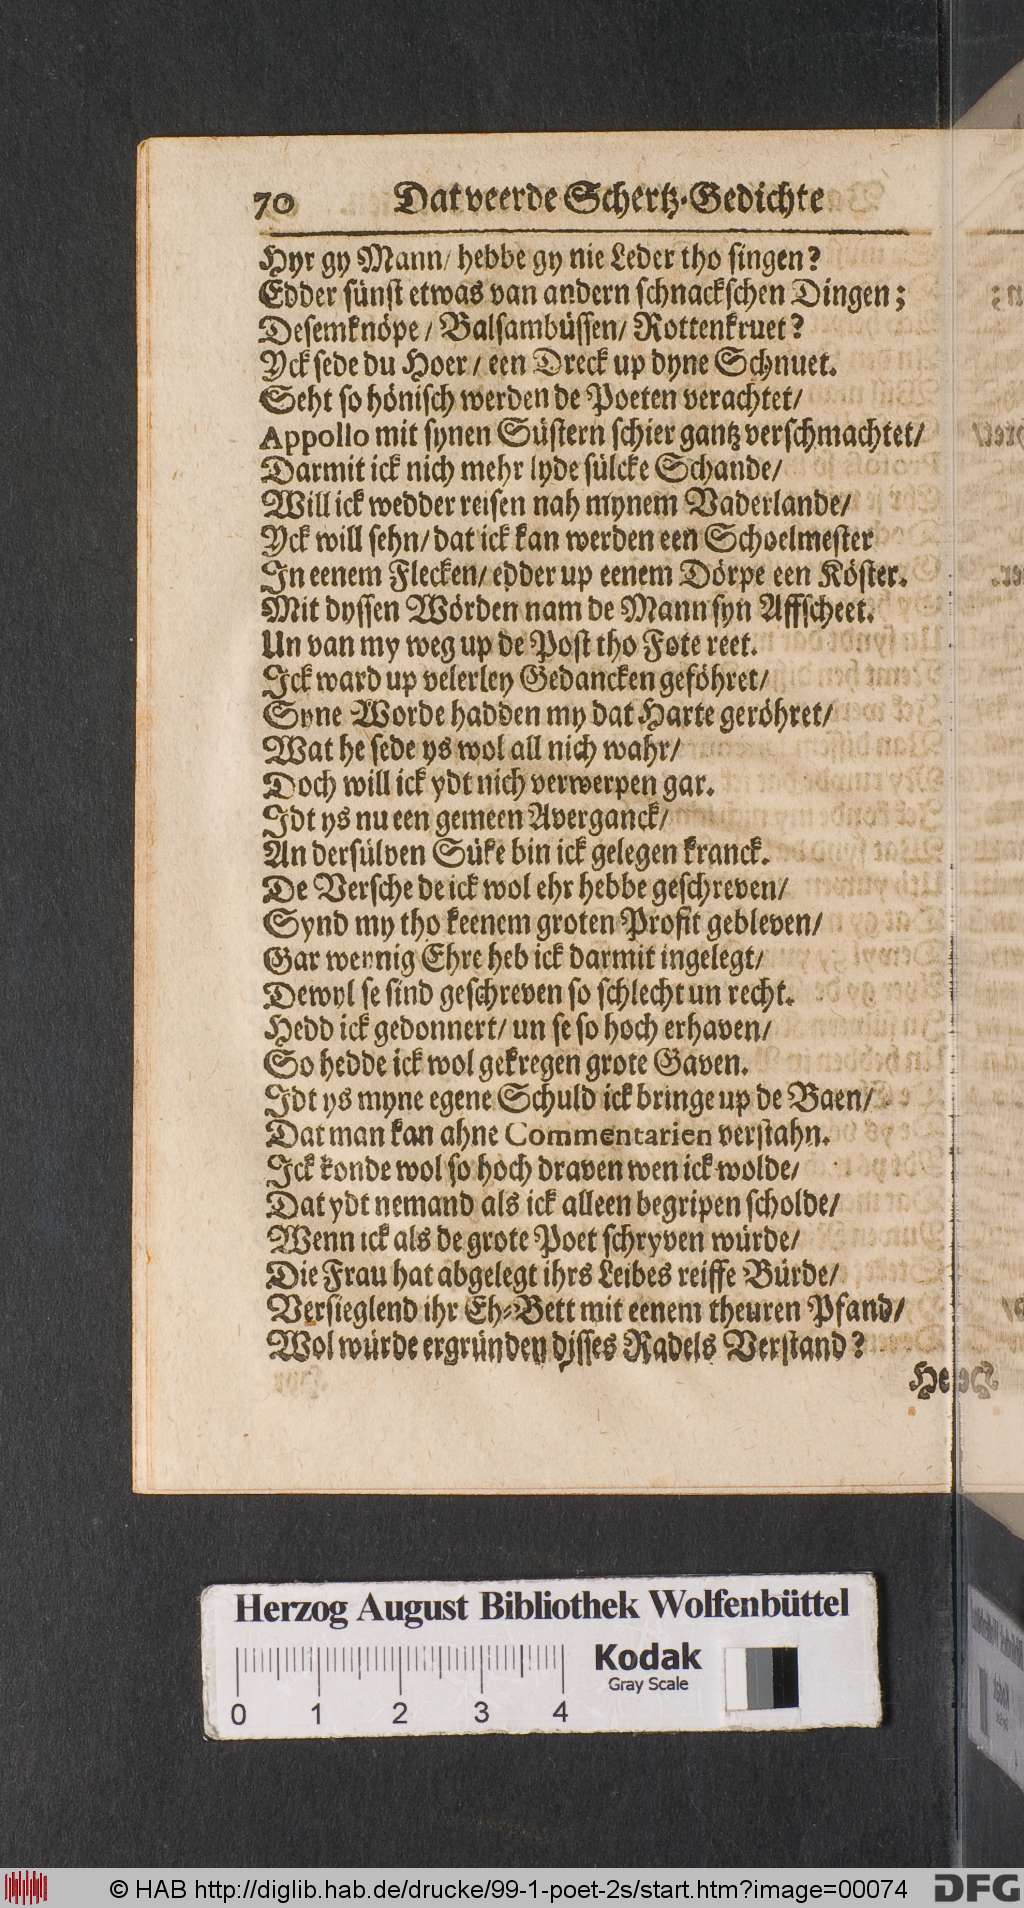 70 Dat veerde Schertz-Gedichte
Hyr gy Mann/ hebbe gy nie Leder tho singen?
Edder sünst etwas van andern schnackschen Dingen;
Desemknöpe/ Balsambüssen/ Rottenkruet?
Yck sede du Hoer/ een Dreck up dyne Schnuet.
Seht so hönisch werden de Poeten verachtet/
Appollo mit synen Süstern schier gantz verschmachtet/
Darmit ick nich mehr lyde sülcke Schande/
Will ick wedder reisen nah mynem Vaderlande/
Yck will sehn/ dat ick kan werden een Schoelmester
In eenem Flecken/ edder up eenem Dörpe een Köster.
Mit dyssen Wörden nam de Mann syn Affscheet.
Un van my weg up de Post tho Fote reet.
Ick ward up velerley Gedancken geföhret/
Syne Worde hadden my dat Harte geröhret/
Wat he sede ys wol all nich wahr/
Doch will ick ydt nich verwerpen gar.
Idt ys nu een gemeen Averganck/
An dersülven Süke bin ick gelegen kranck.
De Versche de ick wol ehr hebbe geschreven/
Synd my tho keenem groten Profit gebleven/
Gar wennig Ehre heb ick darmit ingelegt/
Dewyl se sind geschreven so schlecht un recht.
Hedd ick gedonnert/ un se so hoch erhaven/
So hedde ick wol gekregen grote Gaven.
Idt ys myne egene Schuld ick bringe up de Baen/
Dat man kan ahne Commentarien verstahn.
Ick konde wol so hoch draven wen ick wolde/
Dat ydt nemand als ick alleen begripen scholde/
Wenn ick als de grote Poet schryven würde/
Die Frau hat abgelegt ihrs Leibes reiffe Bürde/
Versieglend ihr Eh-Bett mit eenem theuren Pfand/
Wol würde ergründen disses Radels Verstand?
Herzog August Bibliothek Wolfenbüttel
0 1 2 3 4
Kodak
Gray Scale
© HAB http://diglib.hab.de/drucke/99-1-poet-2s/start.htm?image=00074
DFG